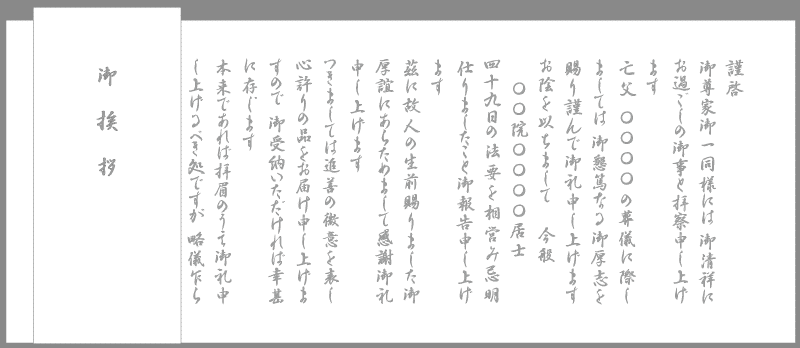 謹啓
御尊家御一同様には 御清祥に
お過ごしの御事と拝察申し上げ
ます
亡父 〇〇〇〇の葬儀に際し
ましては 御懇篤なる御厚志を
賜り謹んで御礼申し上げます
お陰を以ちまして 今般
〇〇院〇〇〇〇居士
四十九日の法要を相営み忌明
仕りましたこと御報告申し上げ
ます
茲に故人の生前賜りました御
厚誼にあらためまして感謝御礼
申し上げます
つきましては追善の微意を表し
心許りの品をお届け申し上げま
すので 御受納いただければ幸甚
に存じます
本来であれば拝眉のうえ御礼申
し上げるべき処ですが 略儀乍ら
御挨拶